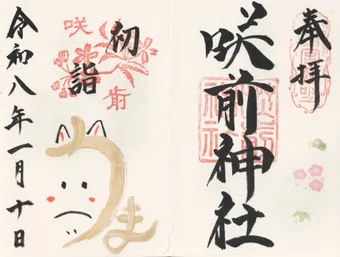 奉拝
咲前神社
初詣
咲前
うま
令和八年一月十日